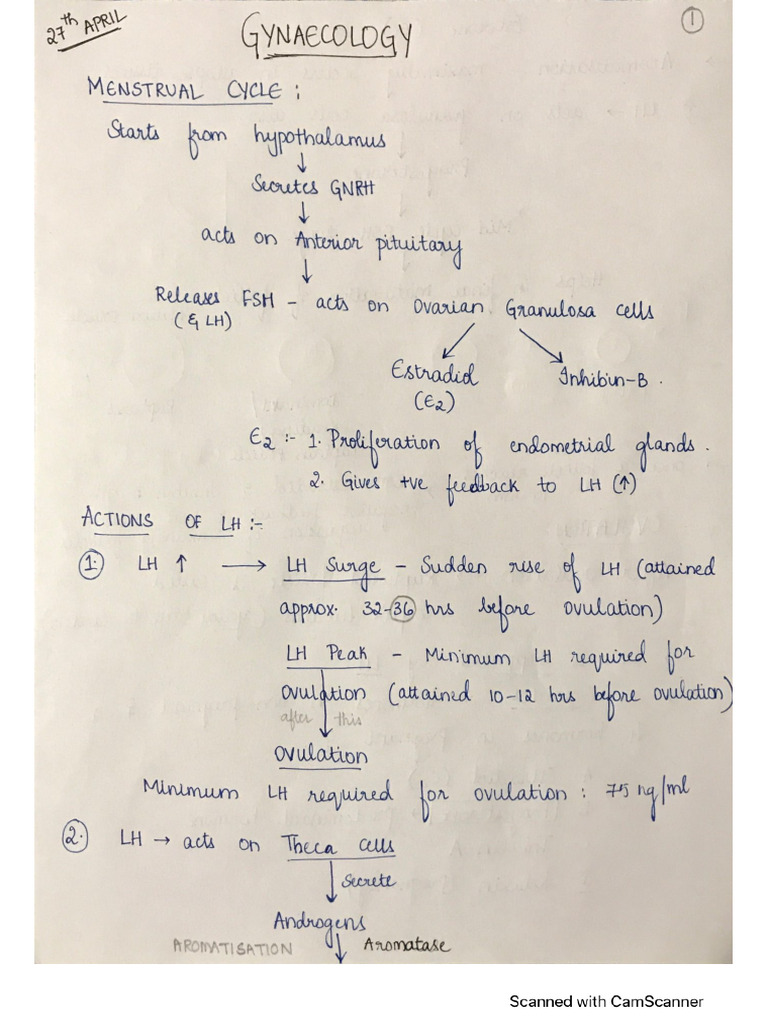 27th APRIL
GYNAECOLOGY
1
MENSTRUAL CYCLE :
Starts from hypothalamus
↓
Secretes GNRH
↓
acts on Anterior pituitary
↓
Releases FSH - acts on Ovarian Granulosa cells
(& LH)
Estradiol Inhibin-B.
(E2)
E2 :- 1. Proliferation of endometrial glands.
2. Gives +ve feedback to LH (↑)
ACTIONS OF LH :-
1. LH ↑ → LH Surge - Sudden rise of LH (attained
approx. 32-36 hrs before ovulation)
LH Peak - Minimum LH required for
ovulation (attained 10-12 hrs before ovulation)
after this
Ovulation
Minimum LH required for ovulation : 75 ng/ml
2. LH → acts on Theca cells
↓ secrete
Androgens
AROMATISATION ↓ Aromatase
Scanned with CamScanner